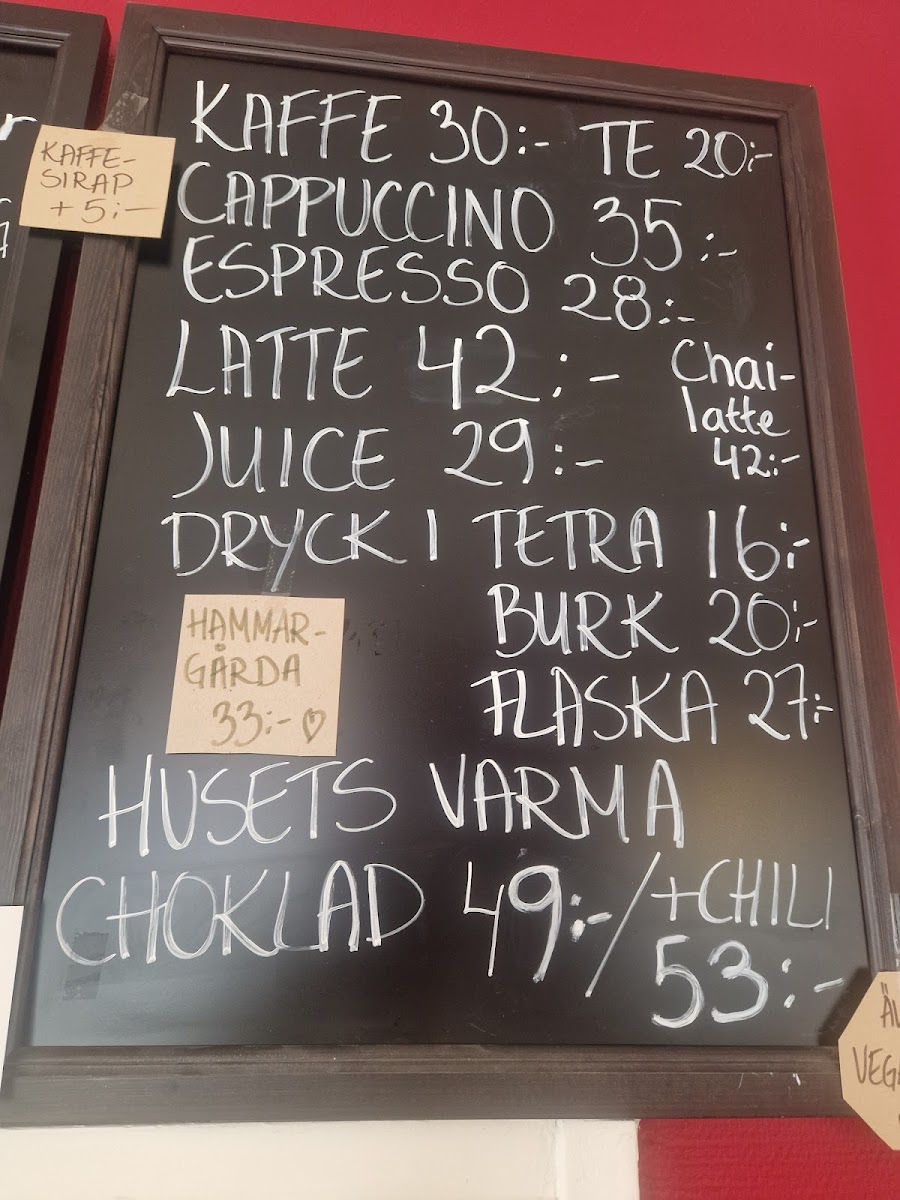 KAFFE 30:- TE 20:-
KAFFE-
SIRAP
+ 5:-
CAPPUCCINO 35:-
ESPRESSO 28:-
LATTE 42:-
Chai-
latte
42:-
JUICE 29:-
DRYCK I TETRA 16:-
BURK 20:-
FLASKA 27:-
HAMMAR-
GÅRDA
33:- ♡
HUSETS VARMA
CHOKLAD 49:-/+CHILI
53:-